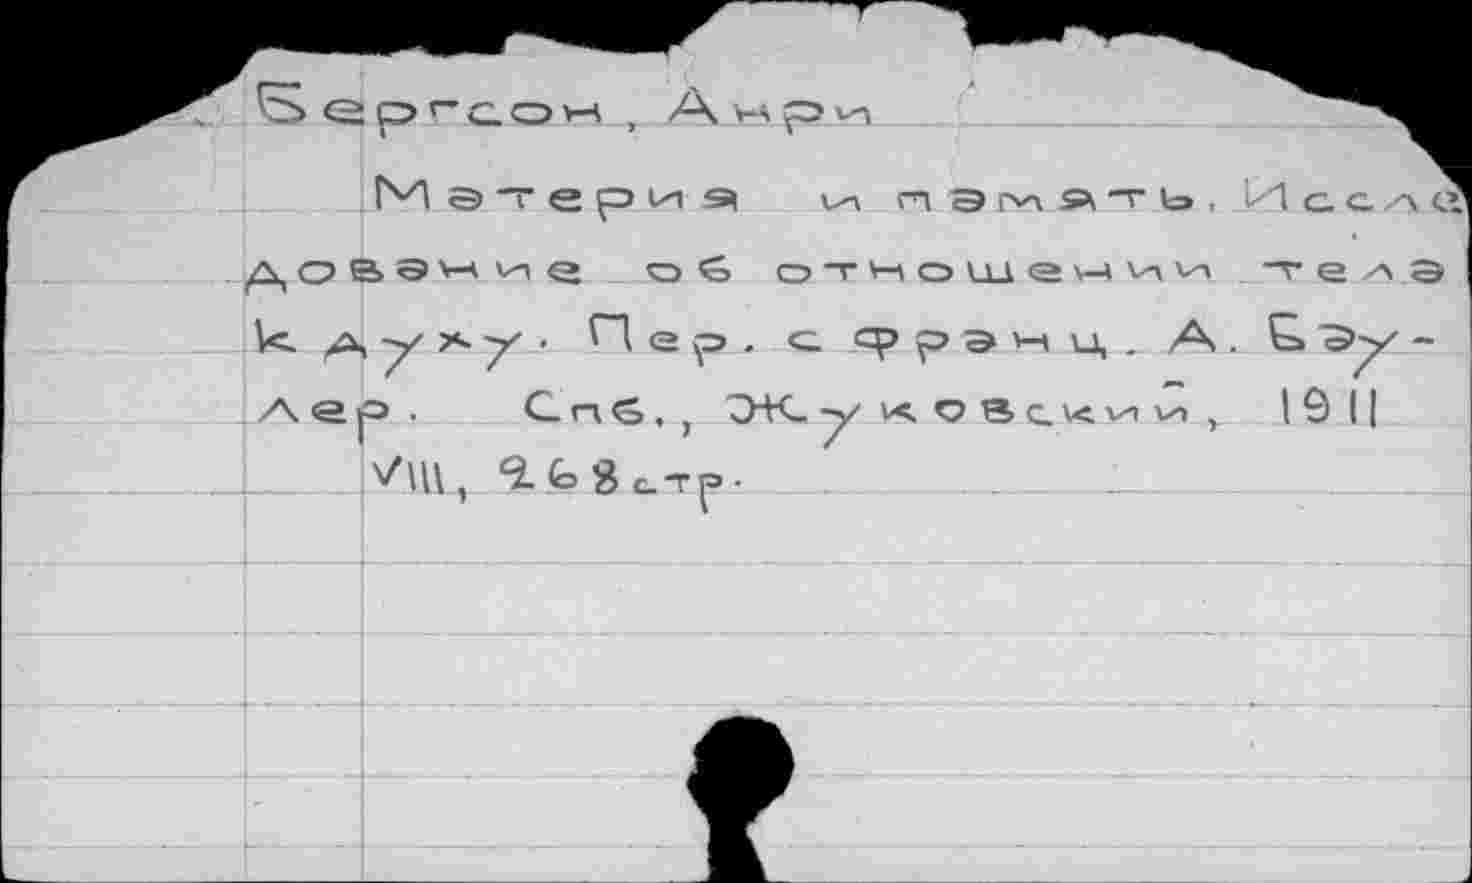 Бергсон, Анри
Материя и память. Иссле
дование об отношении тела
к духу. Пер. с франц. А. Бау-
лер. Спб., Жуковский, 1911
VIII, 268 стр.